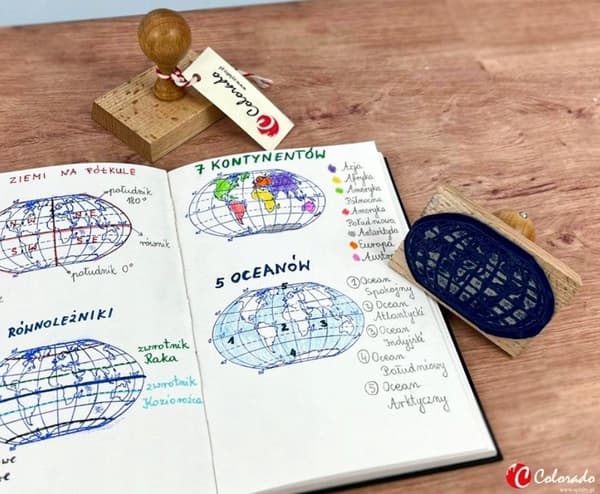 Colorado
ZIEMI NA PÓŁKULE
południk
180°
równik
południk 0°
RÓWNOLEŻNIKI
zwrotnik
Raka
zwrotnik
Koziorożca
7 KONTYNENTÓW
Azja
Afryka
Ameryka
Północna
Ameryka
Południowa
Antarktyda
Europa
5 OCEANÓW
5
1
2
3
4
① Ocean
Spokojny
② Ocean
Atlantycki
③ Ocean
Indyjski
④ Ocean
Południowy
⑤ Ocean
Arktyczny
Colorado